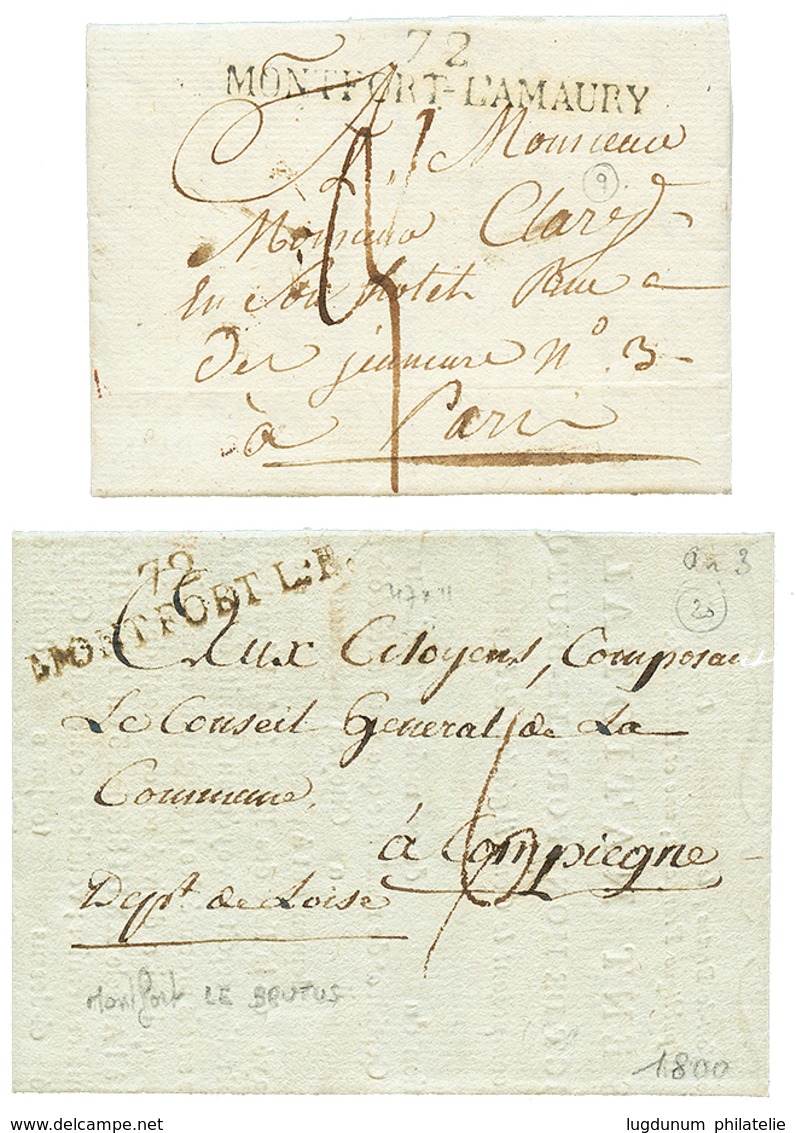 72
MONTFORT-L'AMAURY
A Monsieur
9
Monsieur Claret
en son hotel Rue
des jeuneurs n° 3
à Paris
72
MONTFORT L:B.
an 3
20
Aux Citoyens, Composant
Le Conseil General de La
Commune
à Compiegne
Dept de Loise
Montfort LE BRUTUS
1800
lugdunum philatelie